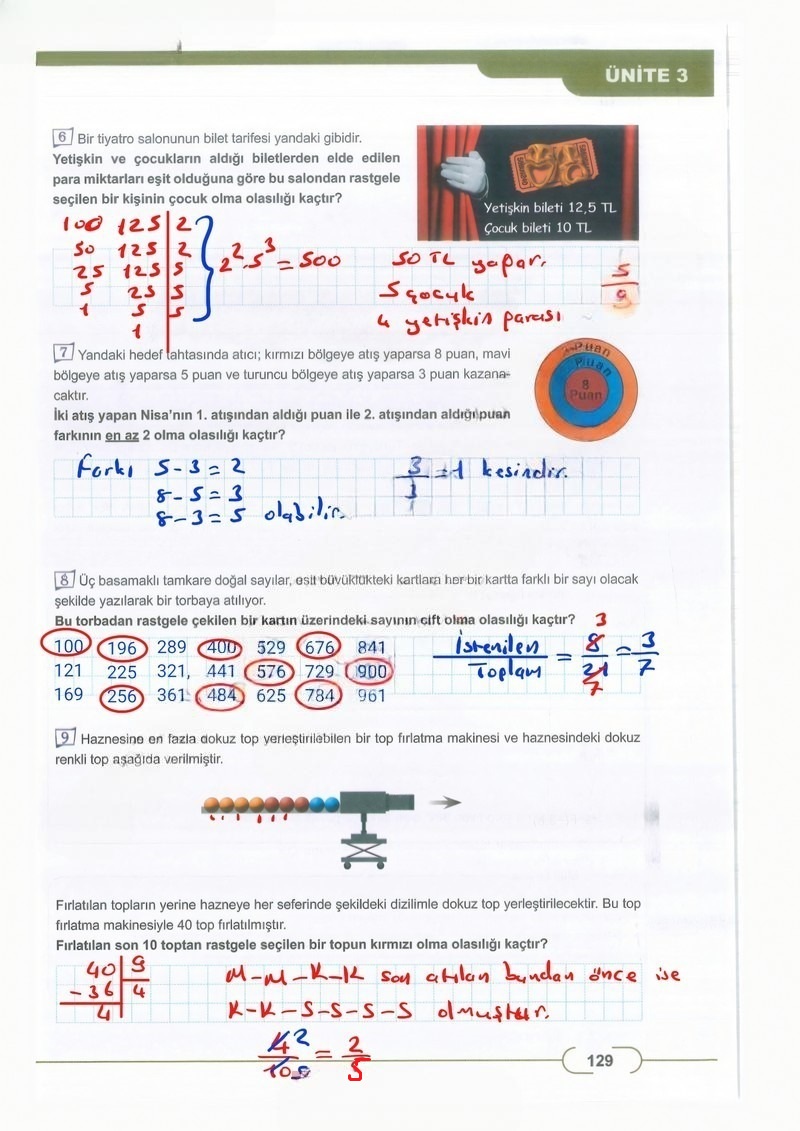 ÜNİTE 3
6 Bir tiyatro salonunun bilet tarifesi yandaki gibidir.
Yetişkin ve çocukların aldığı biletlerden elde edilen
para miktarları eşit olduğuna göre bu salondan rastgele
seçilen bir kişinin çocuk olma olasılığı kaçtır?
Yetişkin bileti 12,5 TL
Çocuk bileti 10 TL
100 125 2
50 125 2
25 125 5
5 25 5
1 5 5
1
2².5³ = 500
50 TL yapar.
5 çocuk
4 yetişkin parası
5
9
7 Yandaki hedef tahtasında atıcı; kırmızı bölgeye atış yaparsa 8 puan, mavi
bölgeye atış yaparsa 5 puan ve turuncu bölgeye atış yaparsa 3 puan kazana-
caktır.
İki atış yapan Nisa'nın 1. atışından aldığı puan ile 2. atışından aldığı puan
farkının en az 2 olma olasılığı kaçtır?
Puan
Puan
8
Puan
Farkı 5-3=2
8-5=3
8-3=5 olabilir.
3/3 =1 kesindir.
8 Üç basamaklı tamkare doğal sayılar, eşit büyüklükteki kartlara her bir kartta farklı bir sayı olacak
şekilde yazılarak bir torbaya atılıyor.
Bu torbadan rastgele çekilen bir kartın üzerindeki sayının çift olma olasılığı kaçtır?
100 196 289 400 529 676 841
121 225 321, 441 576 729 900
169 256 361 484 625 784 961
3
İstenilen = 8 = 3
Toplam 21 7
7
9 Haznesine en fazla dokuz top yerleştirilebilen bir top fırlatma makinesi ve haznesindeki dokuz
renkli top aşağıda verilmiştir.
Fırlatılan topların yerine hazneye her seferinde şekildeki dizilimle dokuz top yerleştirilecektir. Bu top
fırlatma makinesiyle 40 top fırlatılmıştır.
Fırlatılan son 10 toptan rastgele seçilen bir topun kırmızı olma olasılığı kaçtır?
40 9
-36 4
4
M-M-K-K son atılan bundan önce ise
K-K-S-S-S-S olmuştur.
4 2 = 2
10 5 5
129